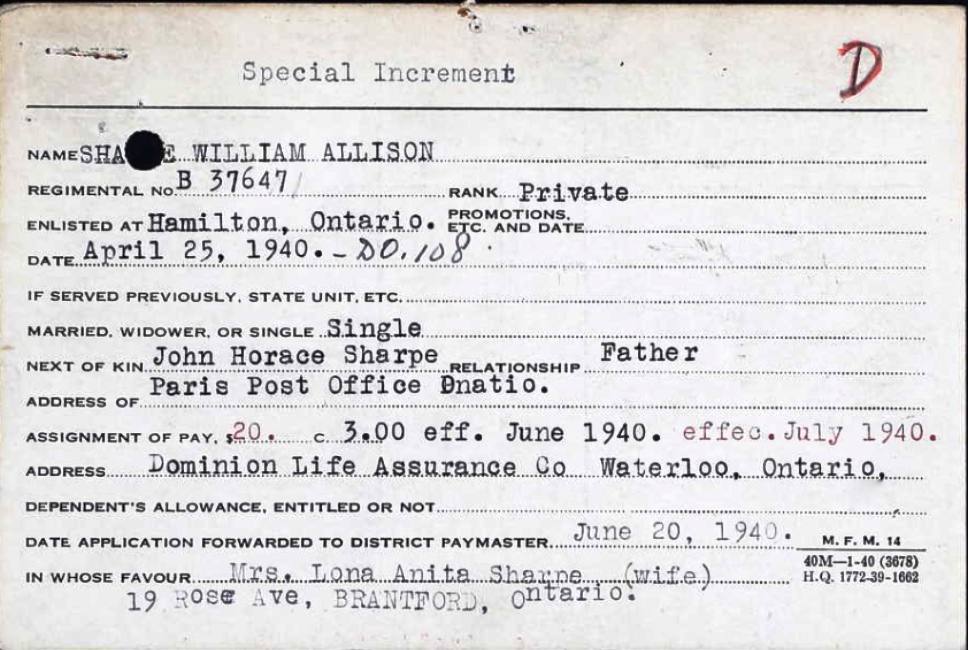 Special Increment
D
NAME SHA E WILLIAM ALLISON
REGIMENTAL No. B 37647 RANK Private
ENLISTED AT Hamilton, Ontario. PROMOTIONS, ETC. AND DATE
DATE April 25, 1940. - DO.108
IF SERVED PREVIOUSLY, STATE UNIT, ETC.
MARRIED, WIDOWER, OR SINGLE Single
NEXT OF KIN John Horace Sharpe RELATIONSHIP Father
ADDRESS OF Paris Post Office Ontatio.
ASSIGNMENT OF PAY, $20. C 3.00 eff. June 1940. effec. July 1940.
ADDRESS Dominion Life Assurance Co Waterloo, Ontario,
DEPENDENT'S ALLOWANCE, ENTITLED OR NOT
DATE APPLICATION FORWARDED TO DISTRICT PAYMASTER June 20, 1940. M. F. M. 14
40M—1-40 (3678)
H.Q. 1772-39-1662
IN WHOSE FAVOUR Mrs. Lona Anita Sharpe (wife)
19 Rose Ave, BRANTFORD, Ontario.